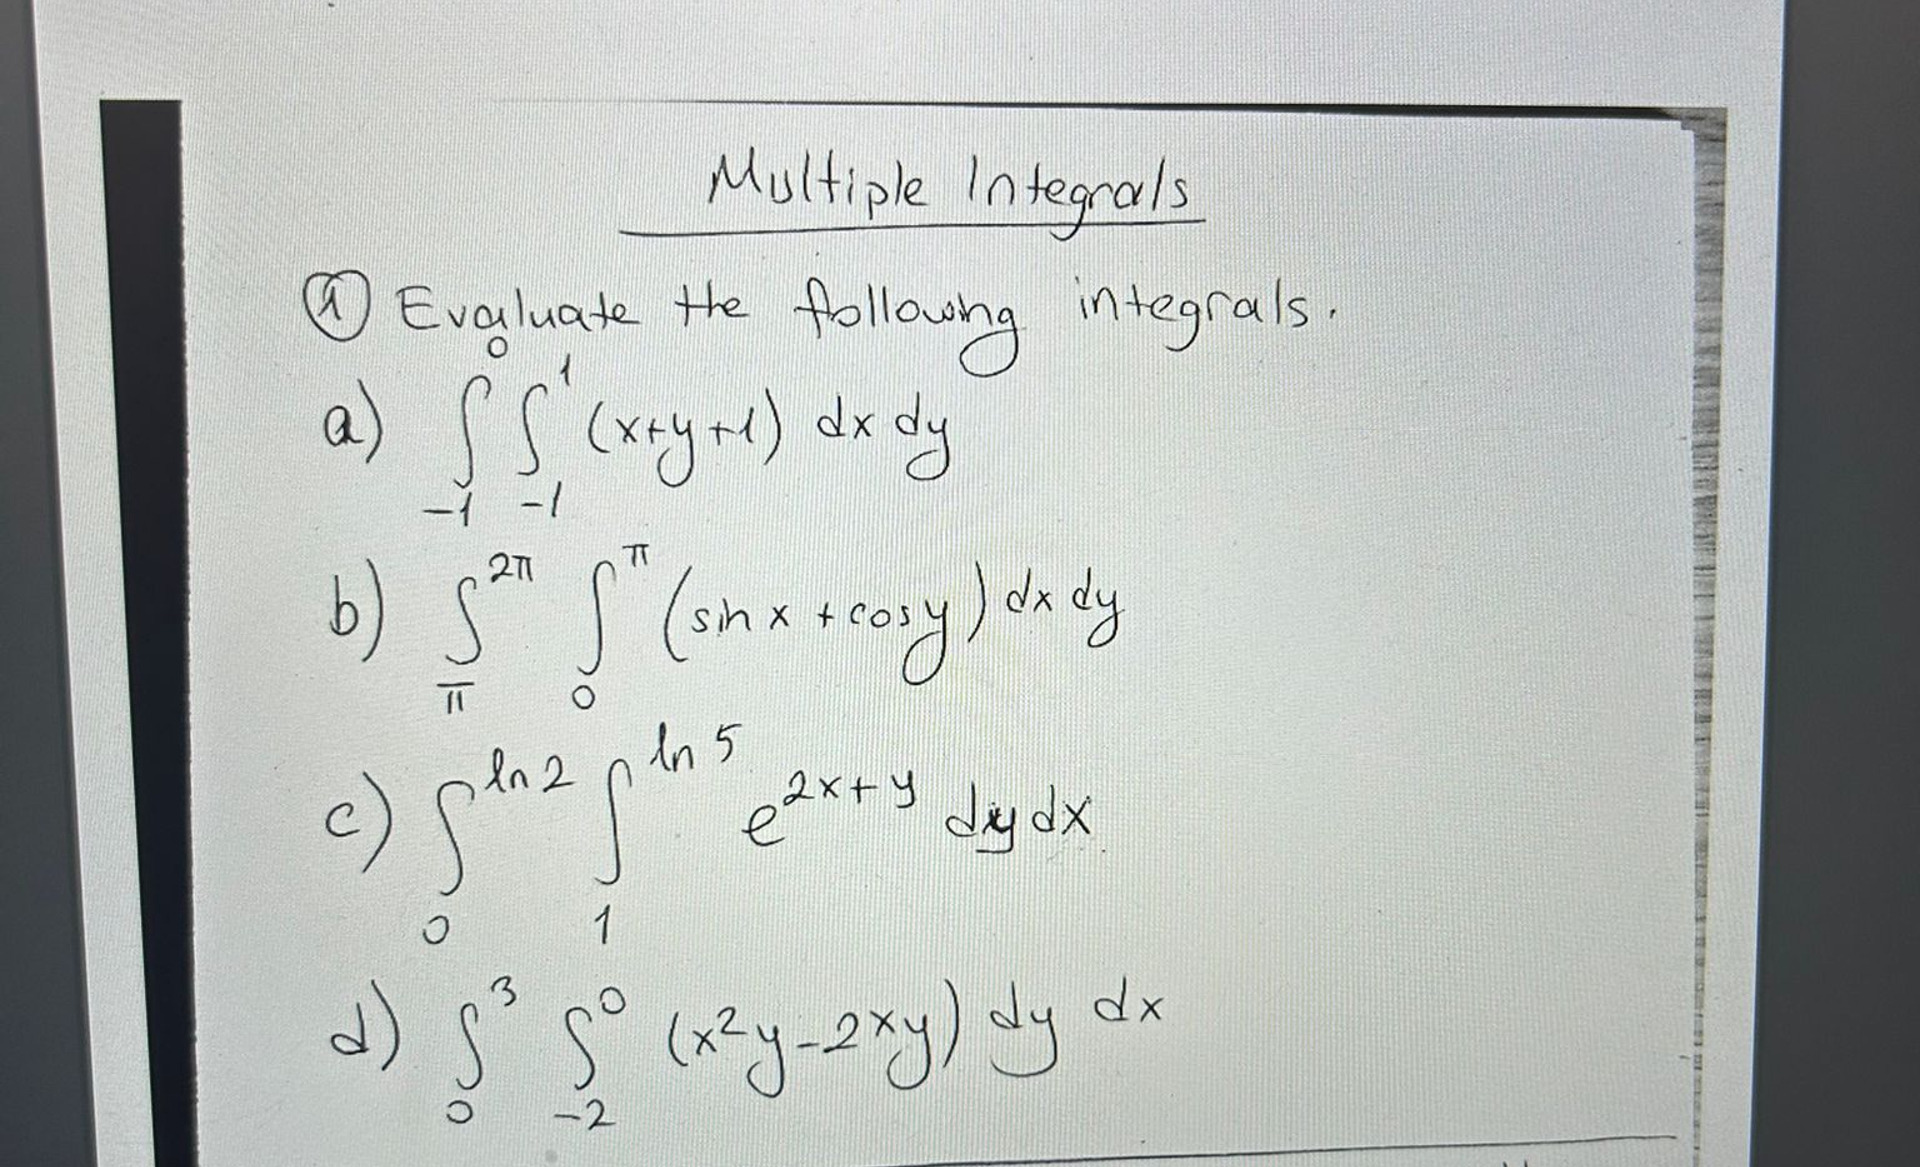 Multiple Integrals
① Evaluate the following integrals.
a) ∫_{-1}^{0} ∫_{-1}^{1} (x+y+1) dx dy
b) ∫_{π}^{2π} ∫_{0}^{π} (sin x + cos y) dx dy
c) ∫_{0}^{ln 2} ∫_{1}^{ln 5} e^{2x+y} dy dx
d) ∫_{0}^{3} ∫_{-2}^{0} (x²y-2xy) dy dx